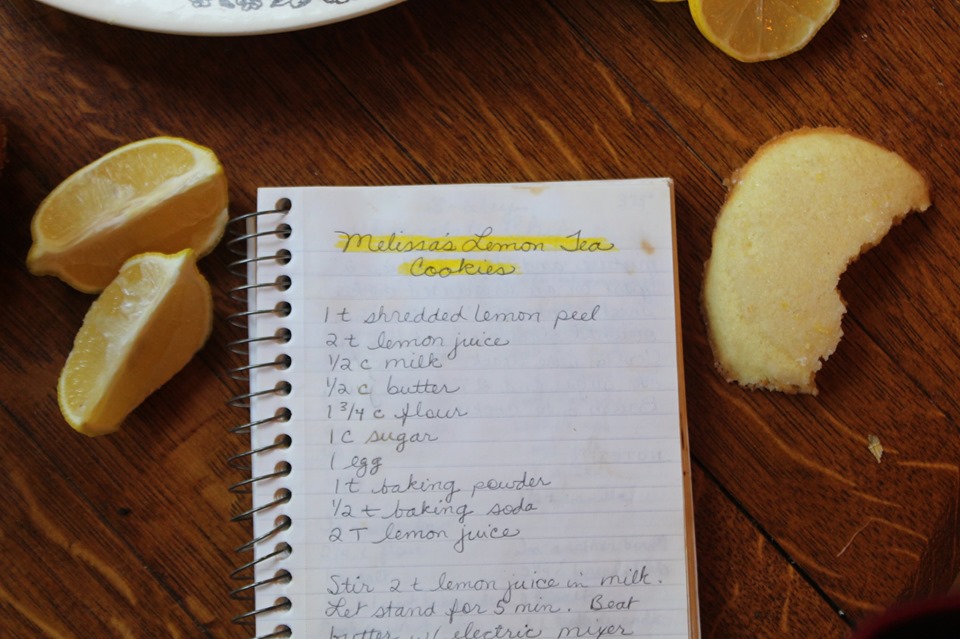 Melissa's Lemon Tea
Cookies
1 t shredded lemon peel
2 t lemon juice
1/2 c milk
1/2 c butter
1 3/4 c flour
1 c sugar
1 egg
1 t baking powder
1/2 t baking soda
2 T lemon juice
Stir 2 t lemon juice in milk.
Let stand for 5 min. Beat
butter w/ electric mixer